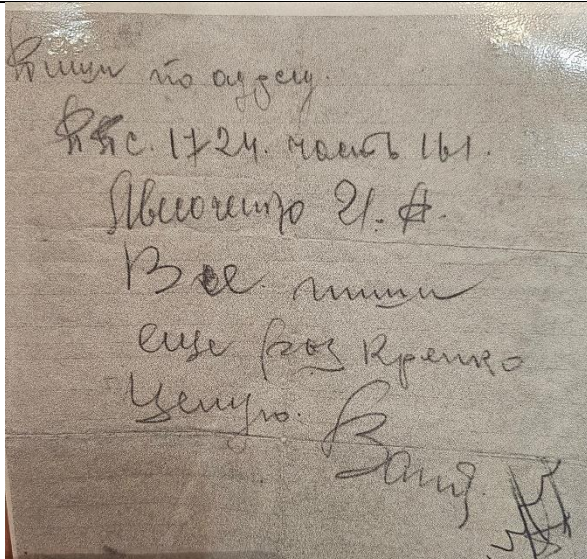 Пиши по адресу.
ППС. 1724. часть 161.
И. А.
Все. пиши
еще раз Крепко
Целую. Ваня.